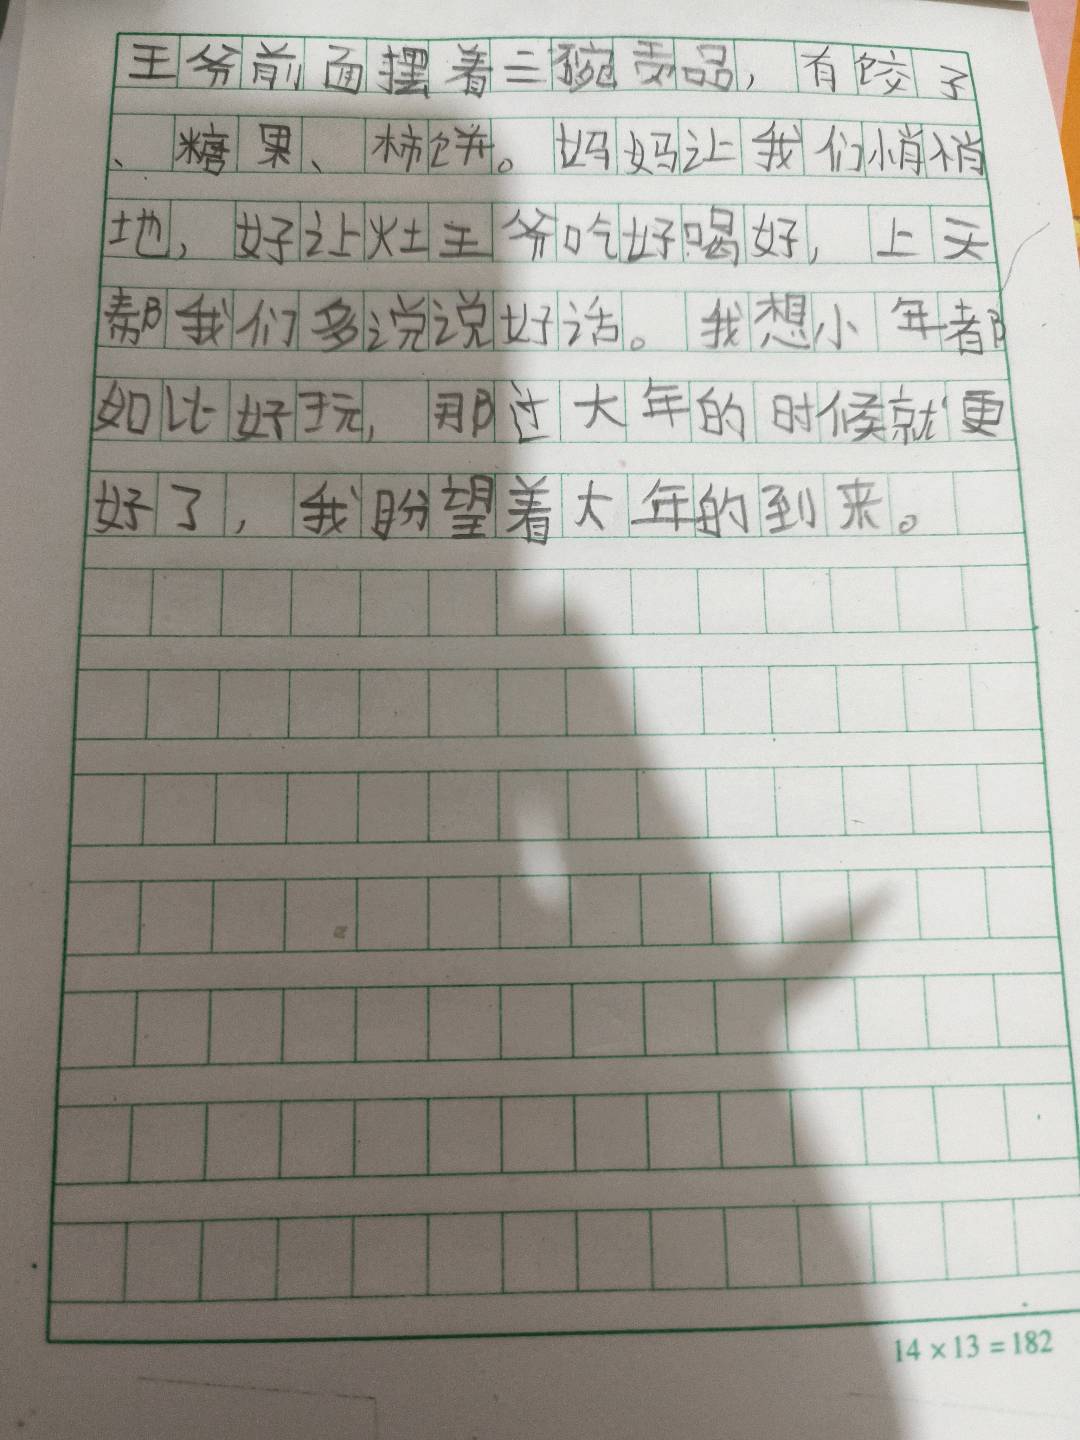 王爷前面摆着三碗贡品,有饺子
、糖果、柿饼。妈妈让我们悄悄
地,好让灶王爷吃好喝好,上天
帮我们多说说好话。我想小年都
如比好玩,那过大年的时候就更
好了,我盼望着大年的到来。
14×13=182